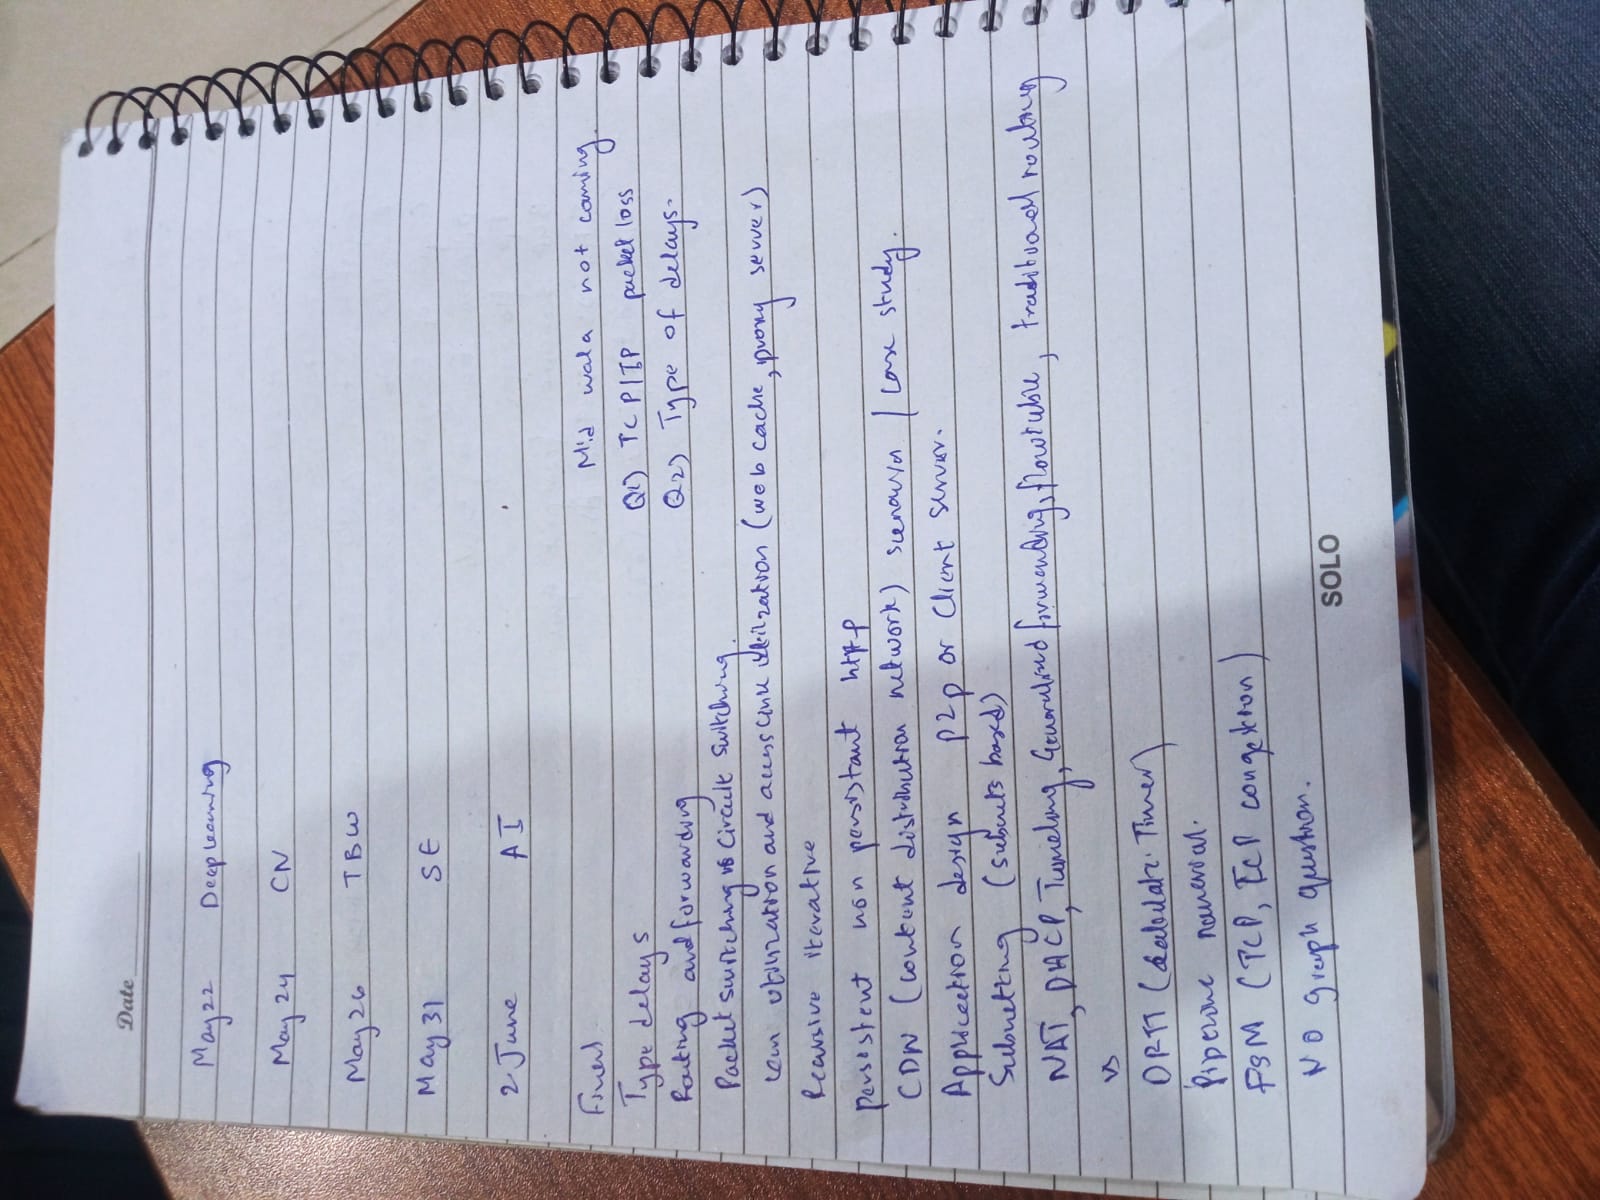 Date
May 22 Deep learning
May 24 CN
May 26 TBW
May 31 SE
2 June AI
Final Mid wala not coming.
Type delays Q1) TCP/IP packet loss
Routing and forwarding Q2) Type of delays.
Packet switching vs Circuit Switching.
Lan utilization and access link utilization (web cache, proxy server)
Recursive iterative
persistent non persistant http
CDN (content distribution network) scenario / case study.
Application design P2p or Client server.
Subnetting (subnets based)
NAT, DHCP, Tunneling, Generalized forwarding, flowtable, traditional routing
vs
(Calculate Timer)
Pipeline numerical.
FSM (TCP, TCP congestion)
NO graph question.
SOLO